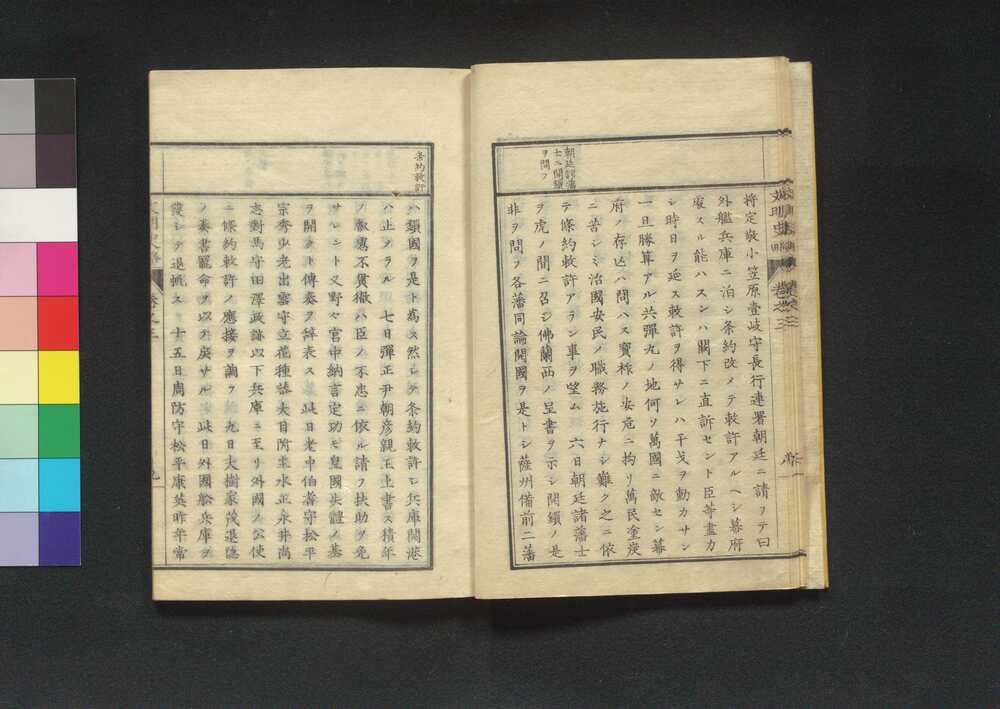 朝廷諸藩
士ニ開鎖
ヲ問フ
将定敬小笠原壹岐守長行連署朝廷ニ請フテ曰
外艦兵庫ニ泊シ条約改メテ敕許アルヘシ幕府
處スル能ハスンハ闕下ニ直訴セント臣等盡力
シ時日ヲ延ス敕許ヲ得サレハ干戈ヲ動カサン
一旦勝算アル共彈丸ノ地何ソ萬國ニ敵セン幕
府ノ存亡ハ問ハス寳祚ノ安危ニ拘リ萬民塗炭
ニ苦シミ治國安民ノ職務施行ナシ難ク之ニ依
テ條約敕許アラン事ヲ望ム 六日朝廷諸藩士
ヲ虎ノ間ニ召シ佛蘭西ノ呈書ヲ示シ開鎖ノ是
非ヲ問ヲ各藩同論開國ヲ是トシ薩州備前二藩
条約敕許
ハ鎖國ヲ是ト為ス然シテ条約敕許シ兵庫開港
ハ止メラル 七日彈正尹朝彦親王上書ス積年
ノ叡慮不貫徹ハ臣ノ不忠ニ依ル請フ扶助ヲ免
サレンニト又野々宮中納言定功モ皇國失體ノ基
ヲ開クト傳奏ヲ辞表ス 此日老中伯耆守松平
宗秀少老出雲守立花種恭大目附主水正永井尚
志對馬守田澤政路以下兵庫ニ至リ外國ノ公使
ニ條約敕許ノ應接ヲ繭ヲ 九日大樹家茂退隠
ノ奏書寵命ヲ以テ戻サル 此日外國船兵庫ヲ
發シテ退帆ス 十五日周防守松平康英昨年常